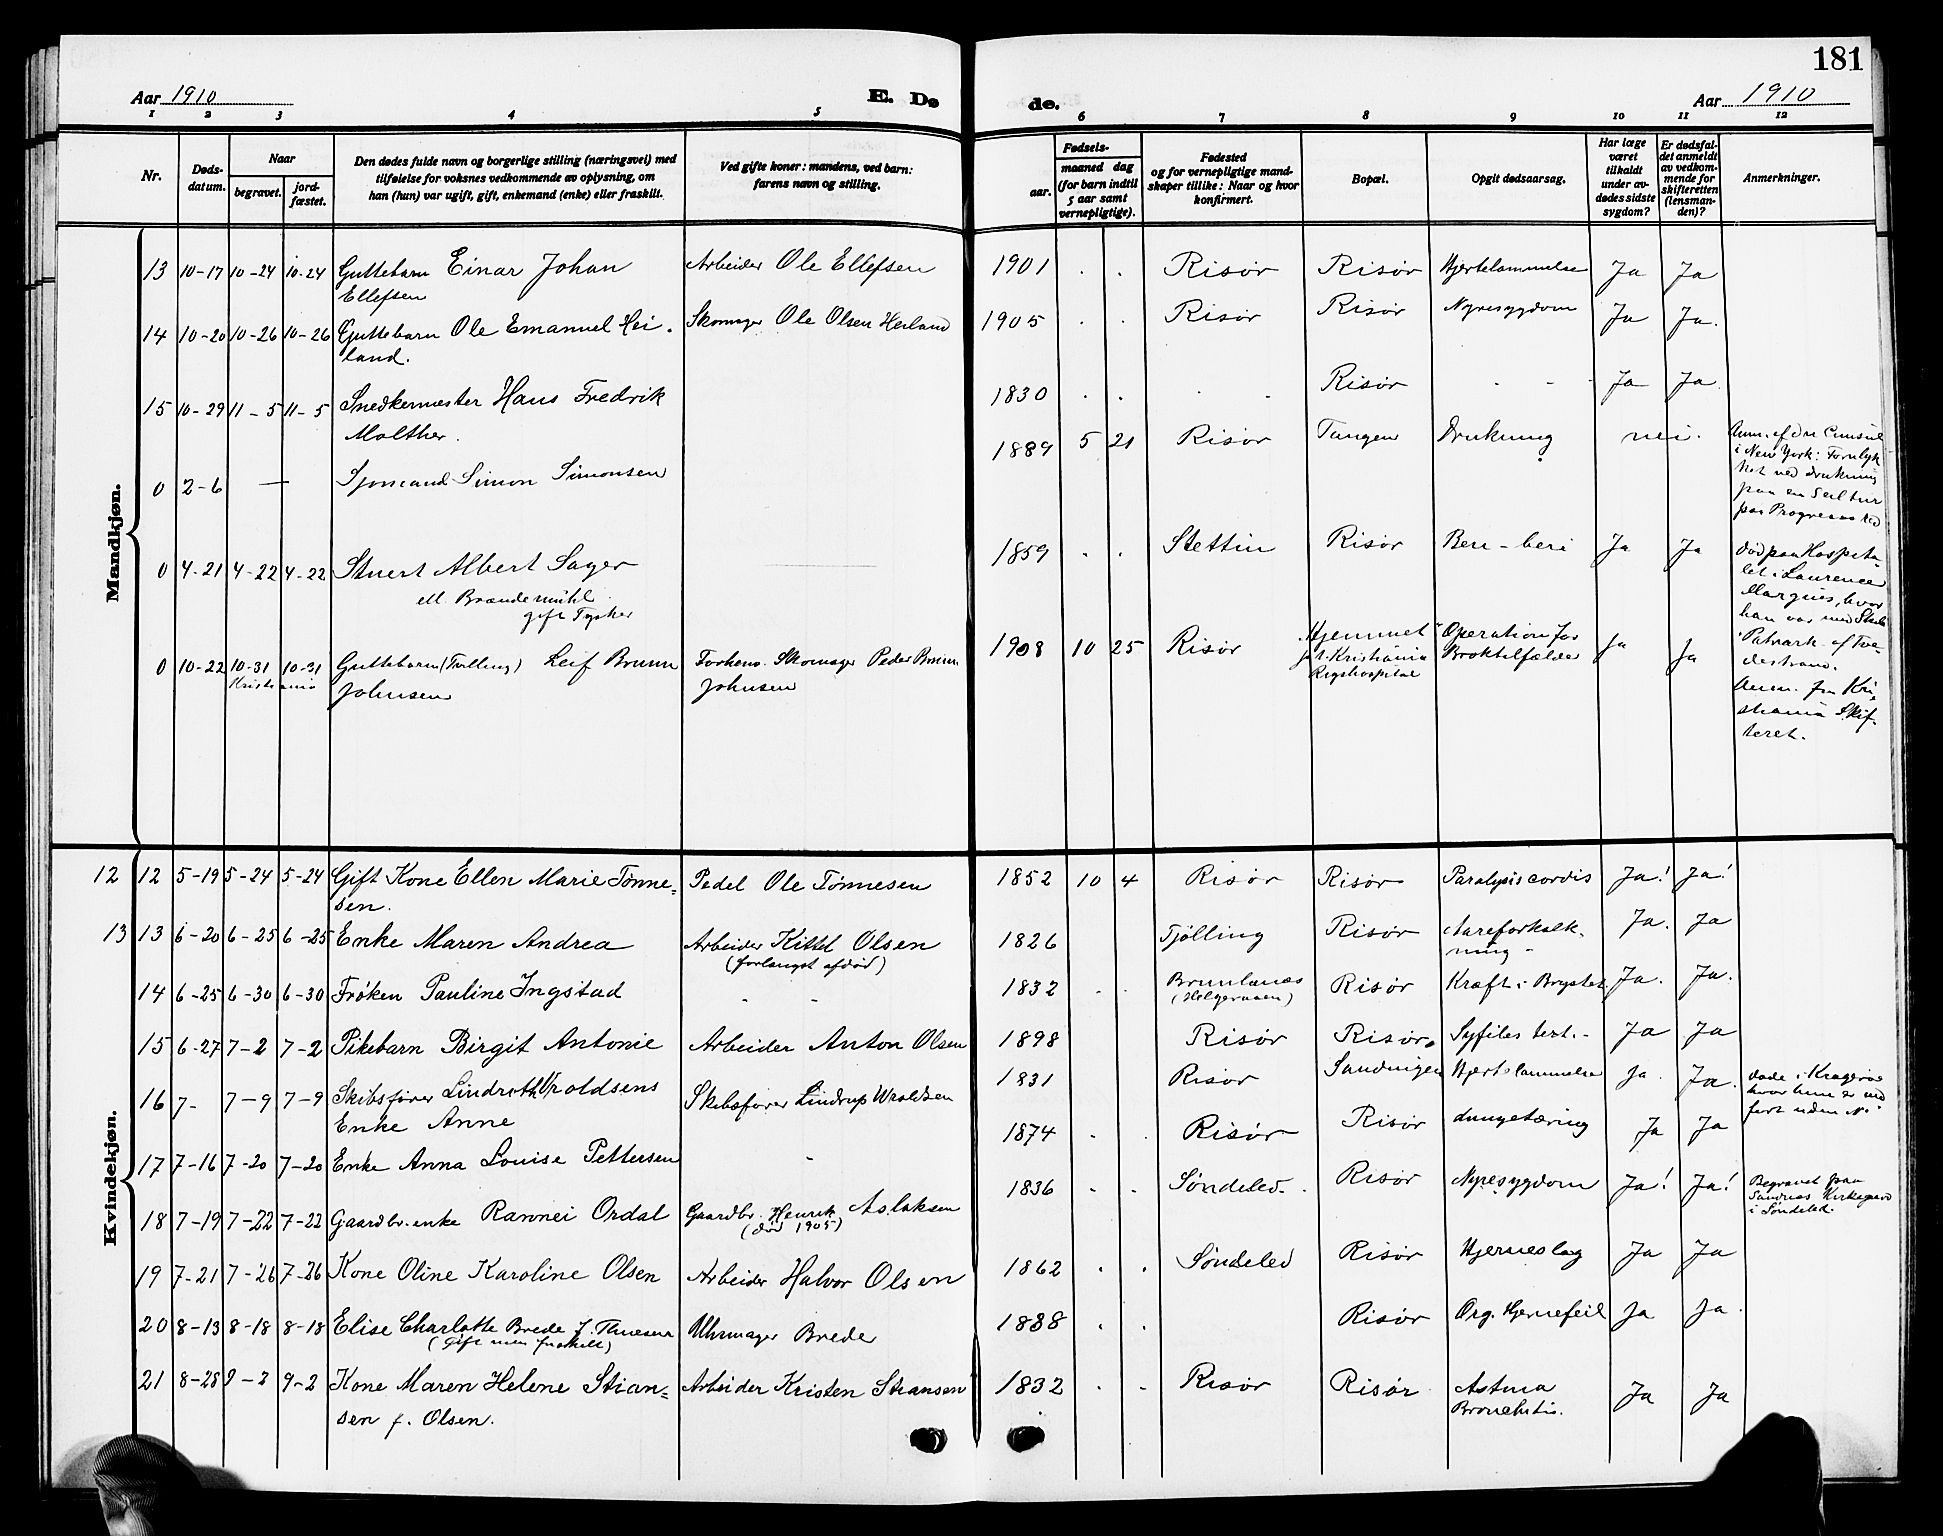 181
Aar 1910 E. Dø de. Aar 1910
1 2 3 4 5 6 7 8 9 10 11 12
Nr.
Døds-
datum.
Naar
begravet.
jord-
fæstet.
Den dødes fulde navn og borgerlige stilling (næringsvei) med
tilføielse for voksnes vedkommende av oplysning, om
han (hun) var ugift, gift, enkemand (enke) eller fraskilt.
Ved gifte koner: mandens, ved barn:
farens navn og stilling.
Fødsels-
aar.
maaned dag
(for barn indtil
5 aar samt
vernepligtige).
Fødested
og for vernepligtige mand-
skaper tillike: Naar og hvor
konfirmert.
Bopæl.
Opgit dødsaarsag.
Har læge
været
tilkaldt
under av-
dødes sidste
sygdom?
Er dødsfal-
det anmeldt
av vedkom-
mende for
skifteretten
(lensman-
den)?
Anmerkninger.
Mandkjøn.
13 10-17 10-24 10-24 Guttebarn Einar Johan Arbeider Ole Ellefsen 1901 . . Risør Risør Hjertelammelse Ja Ja
Ellefsen
14 10-20 10-26 10-26 Guttebarn Ole Emanuel Hei- Skomager Ole Olsen Heiland 1905 . . Risør Risør Nyresygdom Ja Ja.
land.
15 10-29 11-5 11-5 Snedkermester Hans Fredrik 1830 . . - Risør - - - Ja Ja
Molther.
0 2-6 — Sjømand Simon Simonsen 1889 5 21 Risør Tangen Drukning nei. Anm. af den Consul
i New York: Forulyk
ket ved drukning
paa en Seiltur
0 4-21 4-22 4-22 Stuert Albert Sager 1859 . . Stettin Risør Beri-beri Ja Ja død paa Hospita-
ell. Brandemühl
gift Tysker
let i Laurence
Marques, hvor
han var med Skib
0 10-22 10-31 10-31 Guttebarn (Tvilling) Leif Bruun Forhenv. Skomager Peder Bruun 1908 10 25 Risør Hjemmet Operation for Ja Ja
Kristiania
Johnsen Johnsen
f. t. Kristiania Broktilfælde
Rigshospital
"Patriark" af Tve-
destrand.
Anm. fra Kri-
stiania Skif-
teret.
Kvindekjøn.
12 12 5-19 5-24 5-24 Gift Kone Ellen Marie Tønne- Pedel Ole Tønnesen 1852 10 4 Risør Risør Paralysis cordis Ja! Ja!
sen.
13 13 6-20 6-25 6-25 Enke Maren Andrea Arbeider Kittel Olsen 1826 Tjølling Risør Aareforkalk- Ja. Ja
(forlængst afdød) ning
14 6-25 6-30 6-30 Frøken Pauline Ingstad - - 1832 . . Brunlanæs Risør Kræft i Brystet Ja. Ja.
(Helgeroaen)
15 6-27 7-2 7-2 Pikebarn Birgit Antonie Arbeider Anton Olsen 1898 Risør Risør. Syfiles tert. - Ja Ja
16 7- 7-9 7-9 Skibsfører Lindrith Wroldsens Skibsfører Lindrup Wroldsen 1831 Risør Sandnigen Hjertelammelse Ja. Ja. døde i Kragerø
Enke Anne
hvor hun er ind
ført uden No
17 7-16 7-20 7-20 Enke Anna Louise Pettersen - 1874 . . Risør Risør Lungetæring Ja Ja
18 7-19 7-22 7-22 Gaardbr.enke Rannei Ordal Gaardbr. Henrik Aslaksen 1836 . . Søndeled. Risør Nyresygdom Ja! Ja! Begravet paa
(død 1905)
Sandnes Kirkegaard
i Søndeled.
19 7-21 7-26 7-26 Kone Oline Karoline Olsen Arbeider Halvor Olsen 1862 . . Søndeled Risør Hjerneslag Ja Ja
20 8-13 8-18 8-18 Elise Charlotte Brede f. Thuesen Uhrmager Brede 1838 . . Risør Org. Hjertefeil Ja Ja.
(Gift men fraskilt)
21 8-28 9-2 9-2 Kone Maren Helene Stian- Arbeider Kristen Stiansen 1832 . . Risør Risør Astma Ja Ja
sen f. Olsen. Bronchitis.